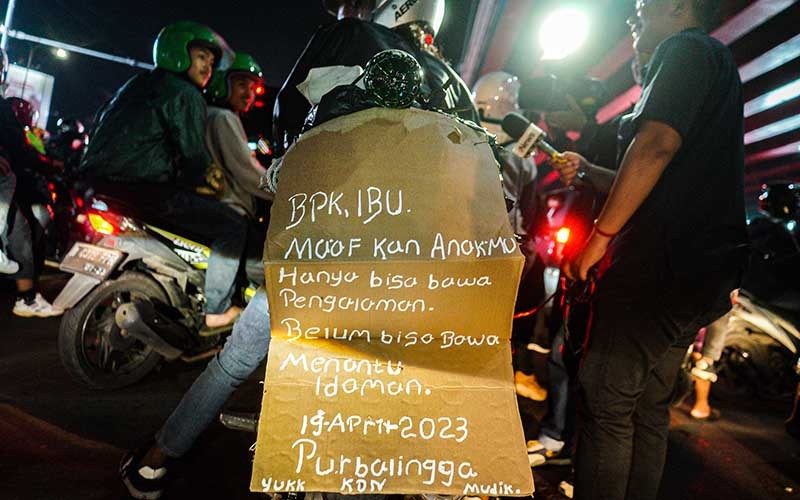 BPK, IBU.
Maaf kan AnakMu
Hanya bisa bawa
Pengalaman.
Belum bisa Bawa
Menantu
Idaman.
19-April-2023
Purbalingga
Yukk KDN Mudik.